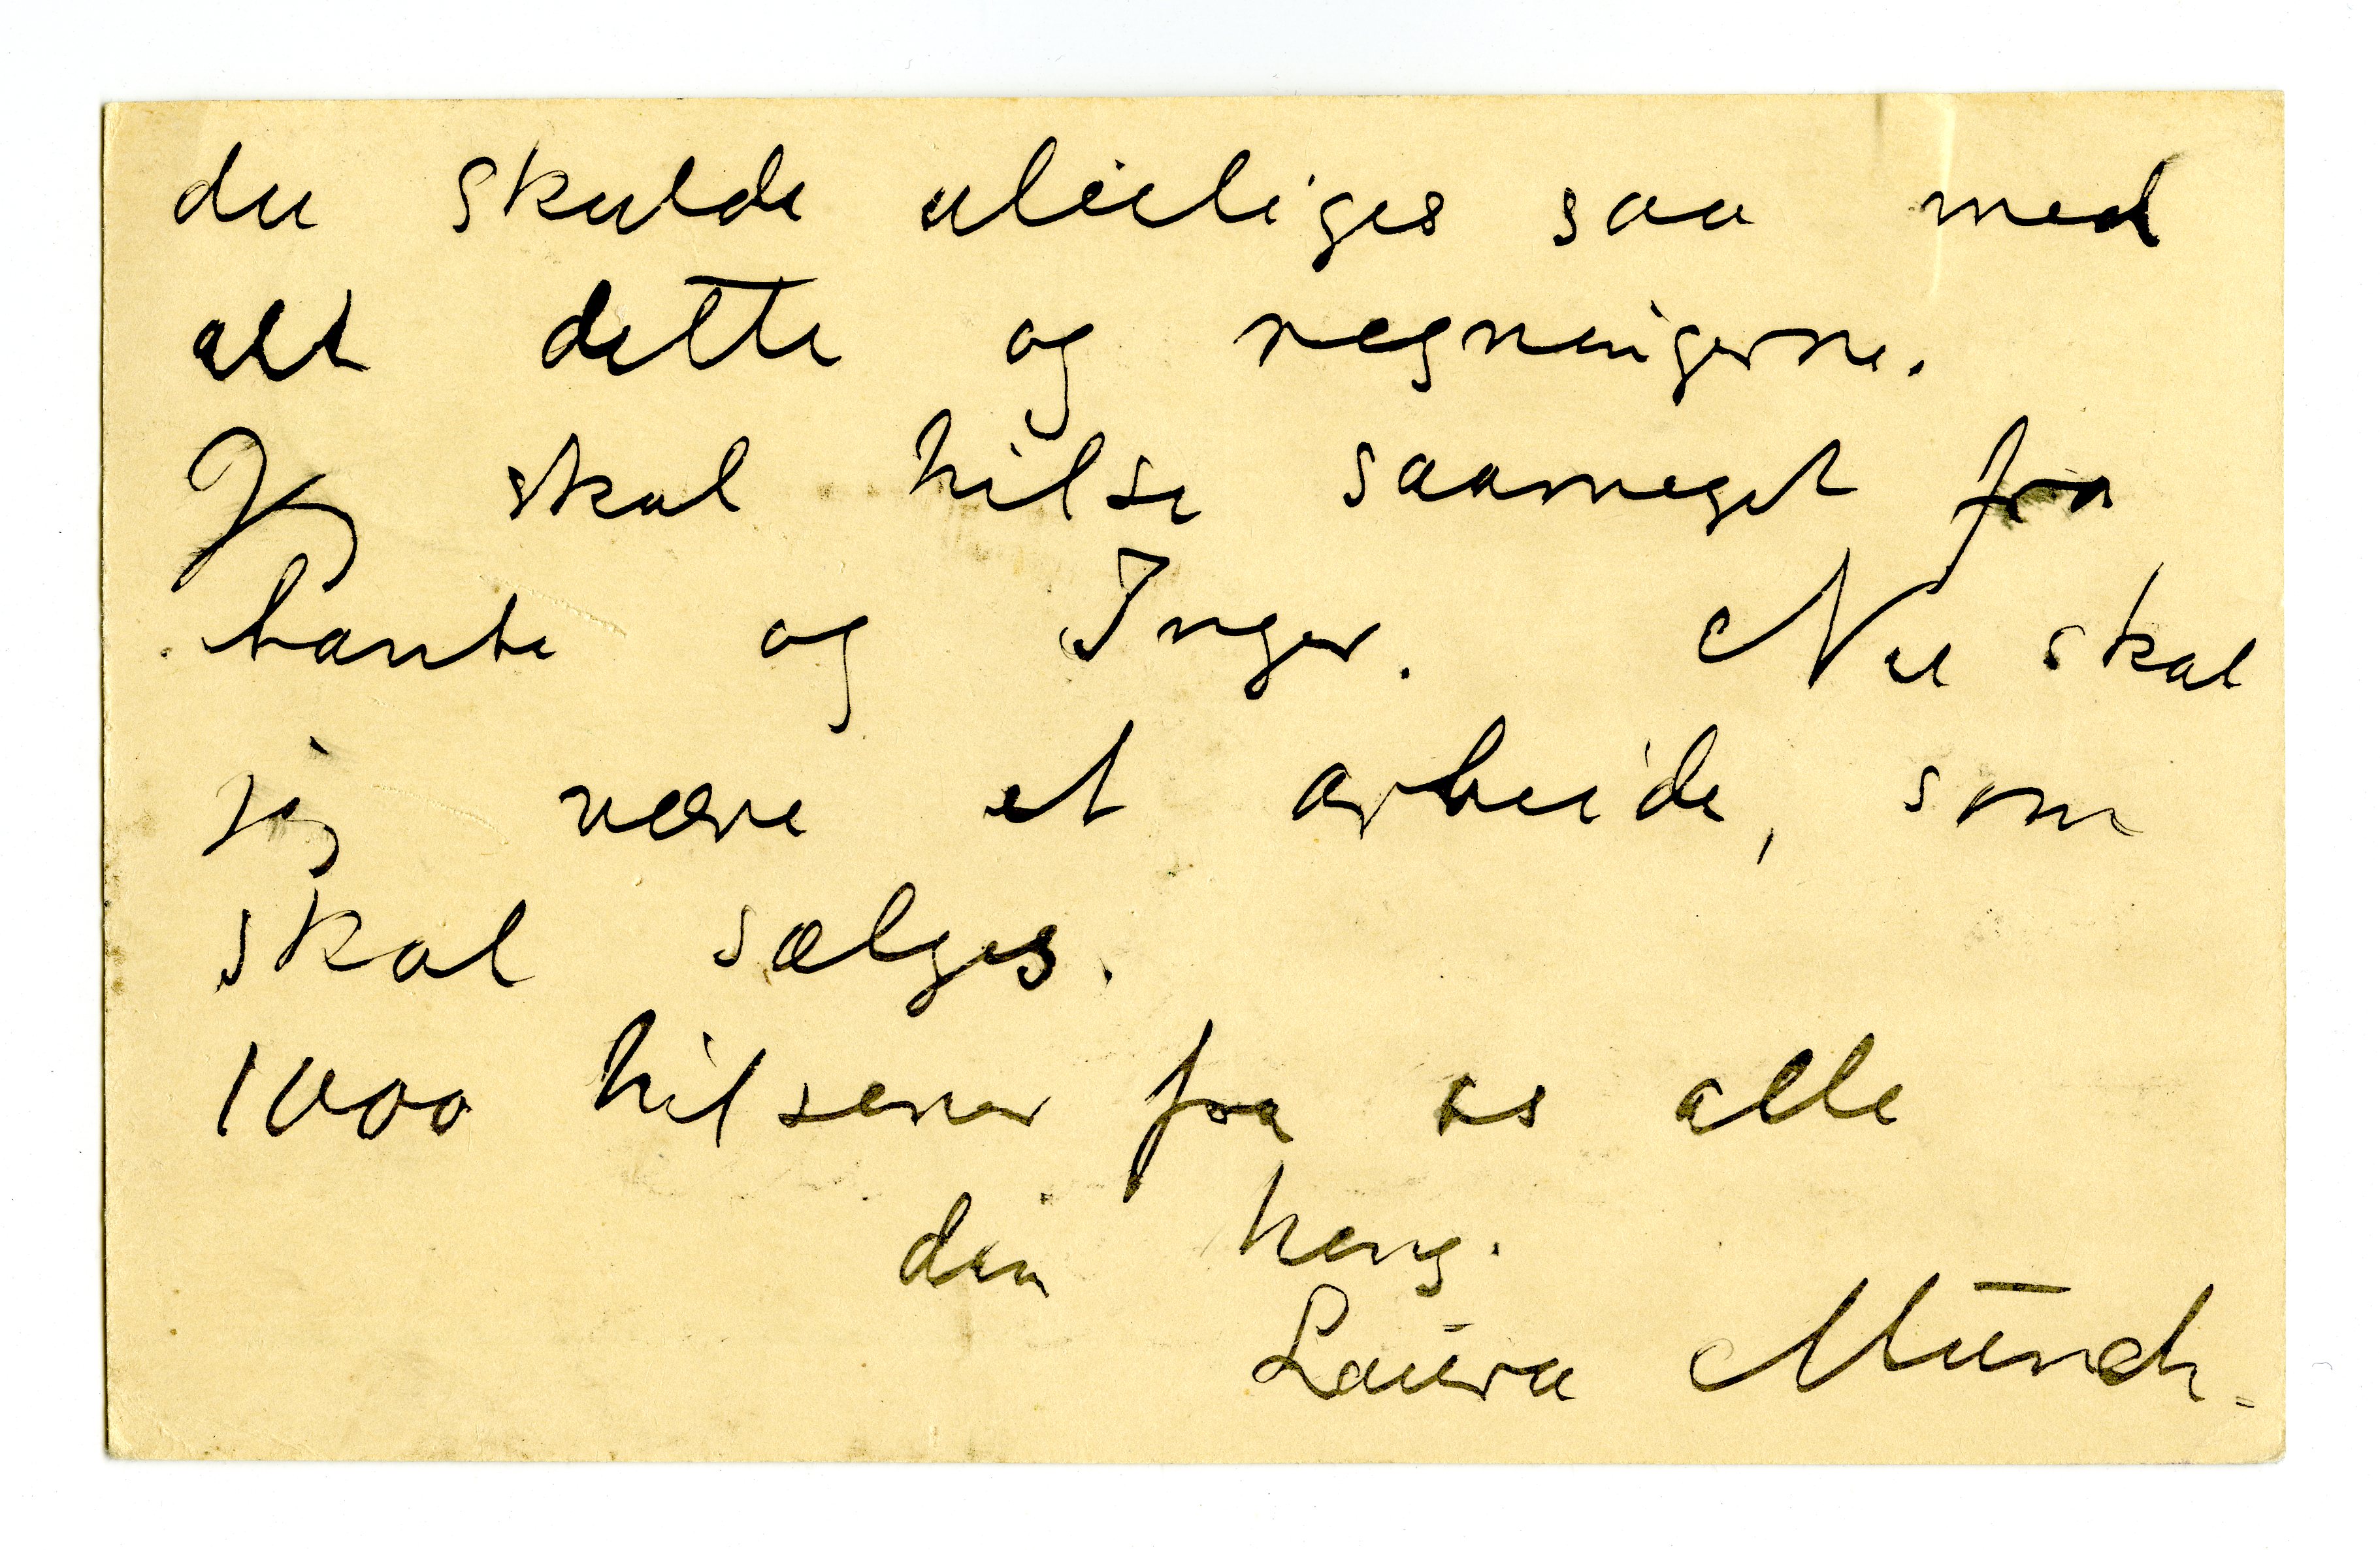 du skulde uleiliges saa med
alt dette og regningerne.
Jeg skal hilse saameget fra
tante og Inger. Nu skal
jeg væve et arbeide, som
skal sælges.
1000 hilsener fra os alle
din heng.
Laura Munch.